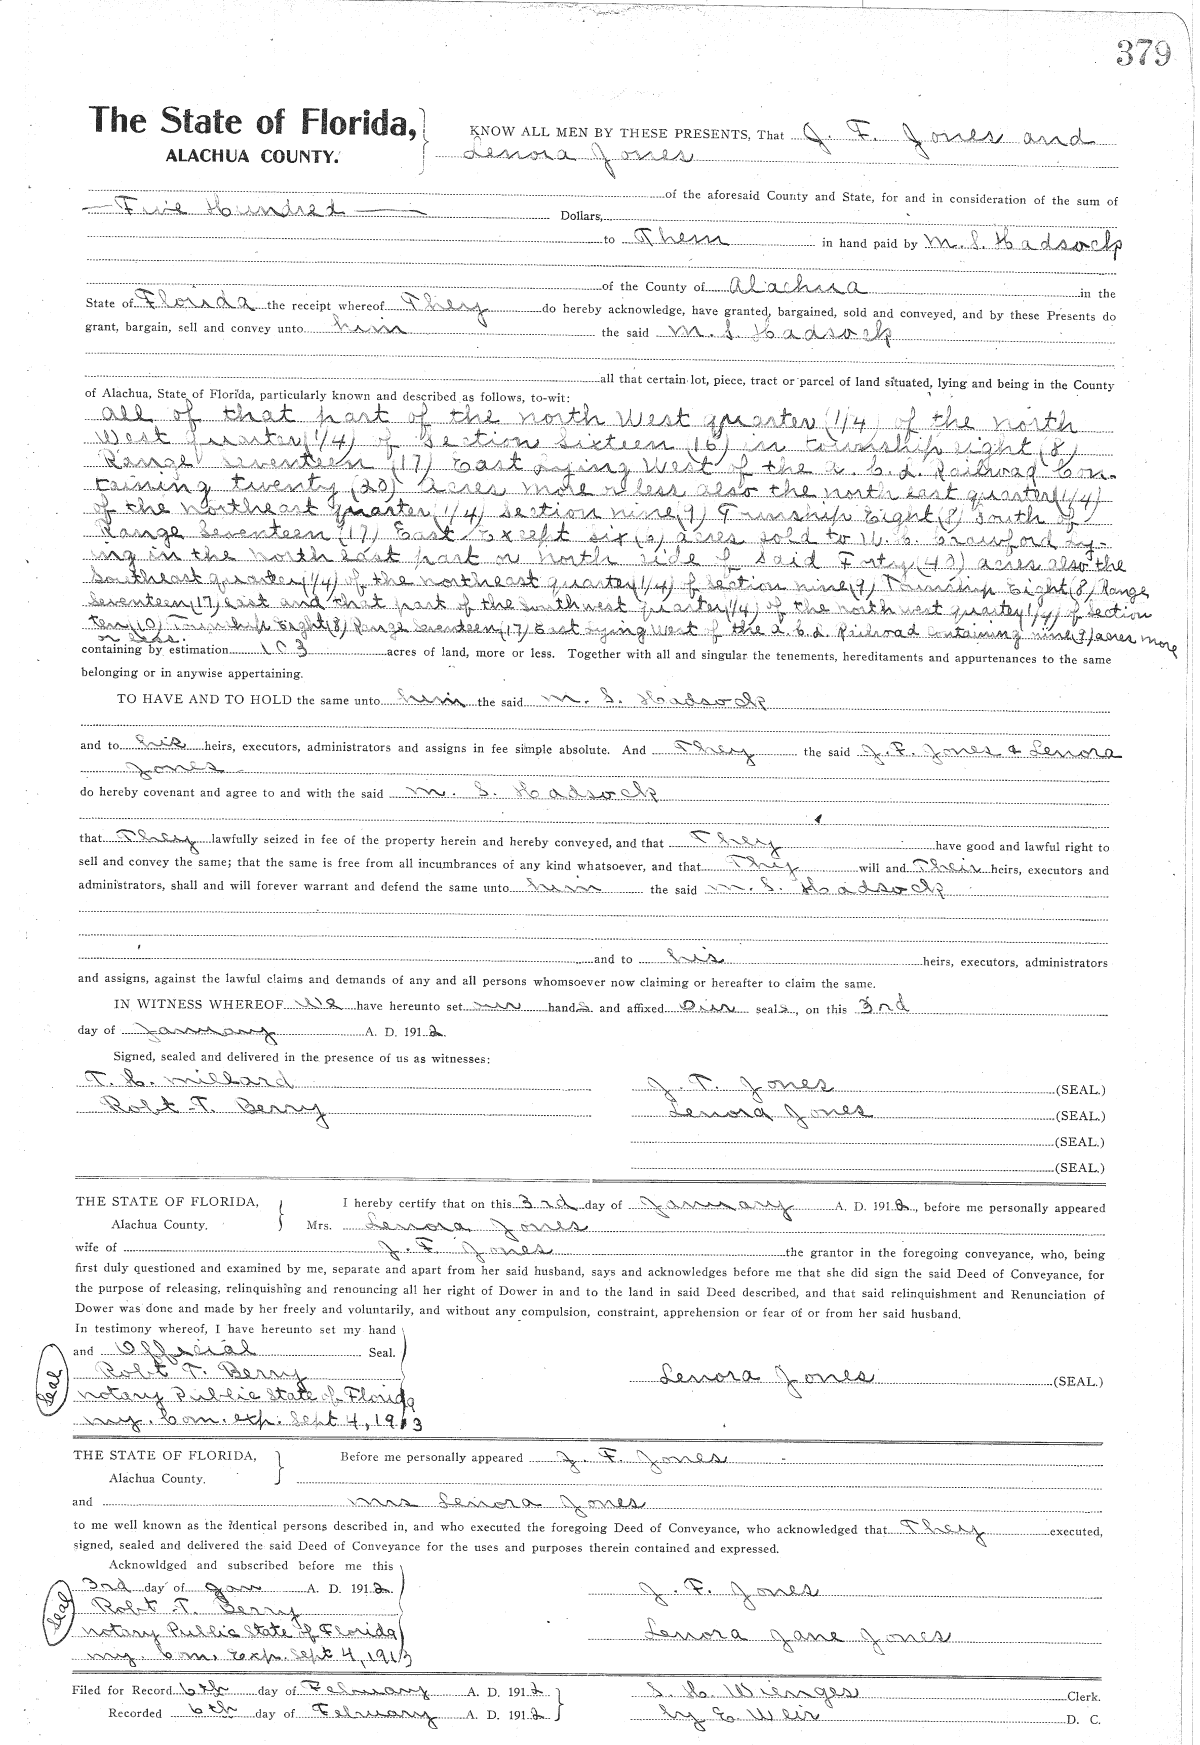 379
The State of Florida,
ALACHUA COUNTY.
KNOW ALL MEN BY THESE PRESENTS, That J. F. Jones and
Lenora Jones
of the aforesaid County and State, for and in consideration of the sum of
Five Hundred Dollars,
to Them in hand paid by M. S. Hadsock
of the County of Alachua in the
State of Florida the receipt whereof They do hereby acknowledge, have granted, bargained, sold and conveyed, and by these Presents do
grant, bargain, sell and convey unto him the said M. S. Hadsock
all that certain lot, piece, tract or parcel of land situated, lying and being in the County
of Alachua, State of Florida, particularly known and described as follows, to-wit:
all of that part of the north West quarter (1/4) of the north
West quarter (1/4) of Section Sixteen (16) in township eight (8)
Range seventeen (17) East Lying West of the a. C. L. Railroad Con-
taining twenty (20) acres more or less also the north east quarter (1/4)
of the northeast quarter (1/4) Section nine (9) Township Eight (8) South of
Range Seventeen (17) East Except six (6) acres sold to Crawford Ly-
ing in the north east part or north side of said Forty (40) acres also the
Southeast quarter (1/4) of the northeast quarter (1/4) of section nine (9) Township Eight (8) Range
Seventeen (17) east and that part of the Southwest quarter (1/4) of the north west quarter (1/4) of section
ten (10) Township Eight (8) Range Seventeen (17) East Lying West of the a. C. L. Railroad containing nine (9) acres more
or less.
containing by estimation 103 acres of land, more or less. Together with all and singular the tenements, hereditaments and appurtenances to the same
belonging or in anywise appertaining.
TO HAVE AND TO HOLD the same unto him the said M. S. Hadsock
and to his heirs, executors, administrators and assigns in fee simple absolute. And They the said J. F. Jones & Lenora
Jones
do hereby covenant and agree to and with the said M. S. Hadsock
that They lawfully seized in fee of the property herein and hereby conveyed, and that They have good and lawful right to
sell and convey the same; that the same is free from all incumbrances of any kind whatsoever, and that They will and Their heirs, executors and
administrators, shall and will forever warrant and defend the same unto him the said M. S. Hadsock
and to his heirs, executors, administrators
and assigns, against the lawful claims and demands of any and all persons whomsoever now claiming or hereafter to claim the same.
IN WITNESS WHEREOF We have hereunto set our hands and affixed Our seals, on this 3rd
day of January A. D. 1912.
Signed, sealed and delivered in the presence of us as witnesses:
T. H. Millard J. T. Jones (SEAL.)
Robt T. Berry Lenora Jones (SEAL.)
(SEAL.)
(SEAL.)
THE STATE OF FLORIDA,
Alachua County.
I hereby certify that on this 3rd day of January A. D. 1912, before me personally appeared
Mrs. Lenora Jones
wife of J. F. Jones the grantor in the foregoing conveyance, who, being
first duly questioned and examined by me, separate and apart from her said husband, says and acknowledges before me that she did sign the said Deed of Conveyance, for
the purpose of releasing, relinquishing and renouncing all her right of Dower in and to the land in said Deed described, and that said relinquishment and Renunciation of
Dower was done and made by her freely and voluntarily, and without any compulsion, constraint, apprehension or fear of or from her said husband.
In testimony whereof, I have hereunto set my hand
and Official Seal.
Robt T. Berry
Lenora Jones (SEAL.)
Seal
notary Public State of Florida
my. Com. exp. Sept 4, 1913
THE STATE OF FLORIDA,
Alachua County.
Before me personally appeared J. F. Jones
and Mrs Lenora Jones
to me well known as the identical persons described in, and who executed the foregoing Deed of Conveyance, who acknowledged that They executed,
signed, sealed and delivered the said Deed of Conveyance for the uses and purposes therein contained and expressed.
Acknowldged and subscribed before me this
3rd day of Jan A. D. 1912 J. F. Jones
Robt T. Berry
Seal
notary Public State of Florida Lenora Jane Jones
my. Com. Exp. Sept 4, 1913
Filed for Record 6th day of February A. D. 1912 S. H. Wienges Clerk.
Recorded 6th day of February A. D. 1912 by E Weir D. C.